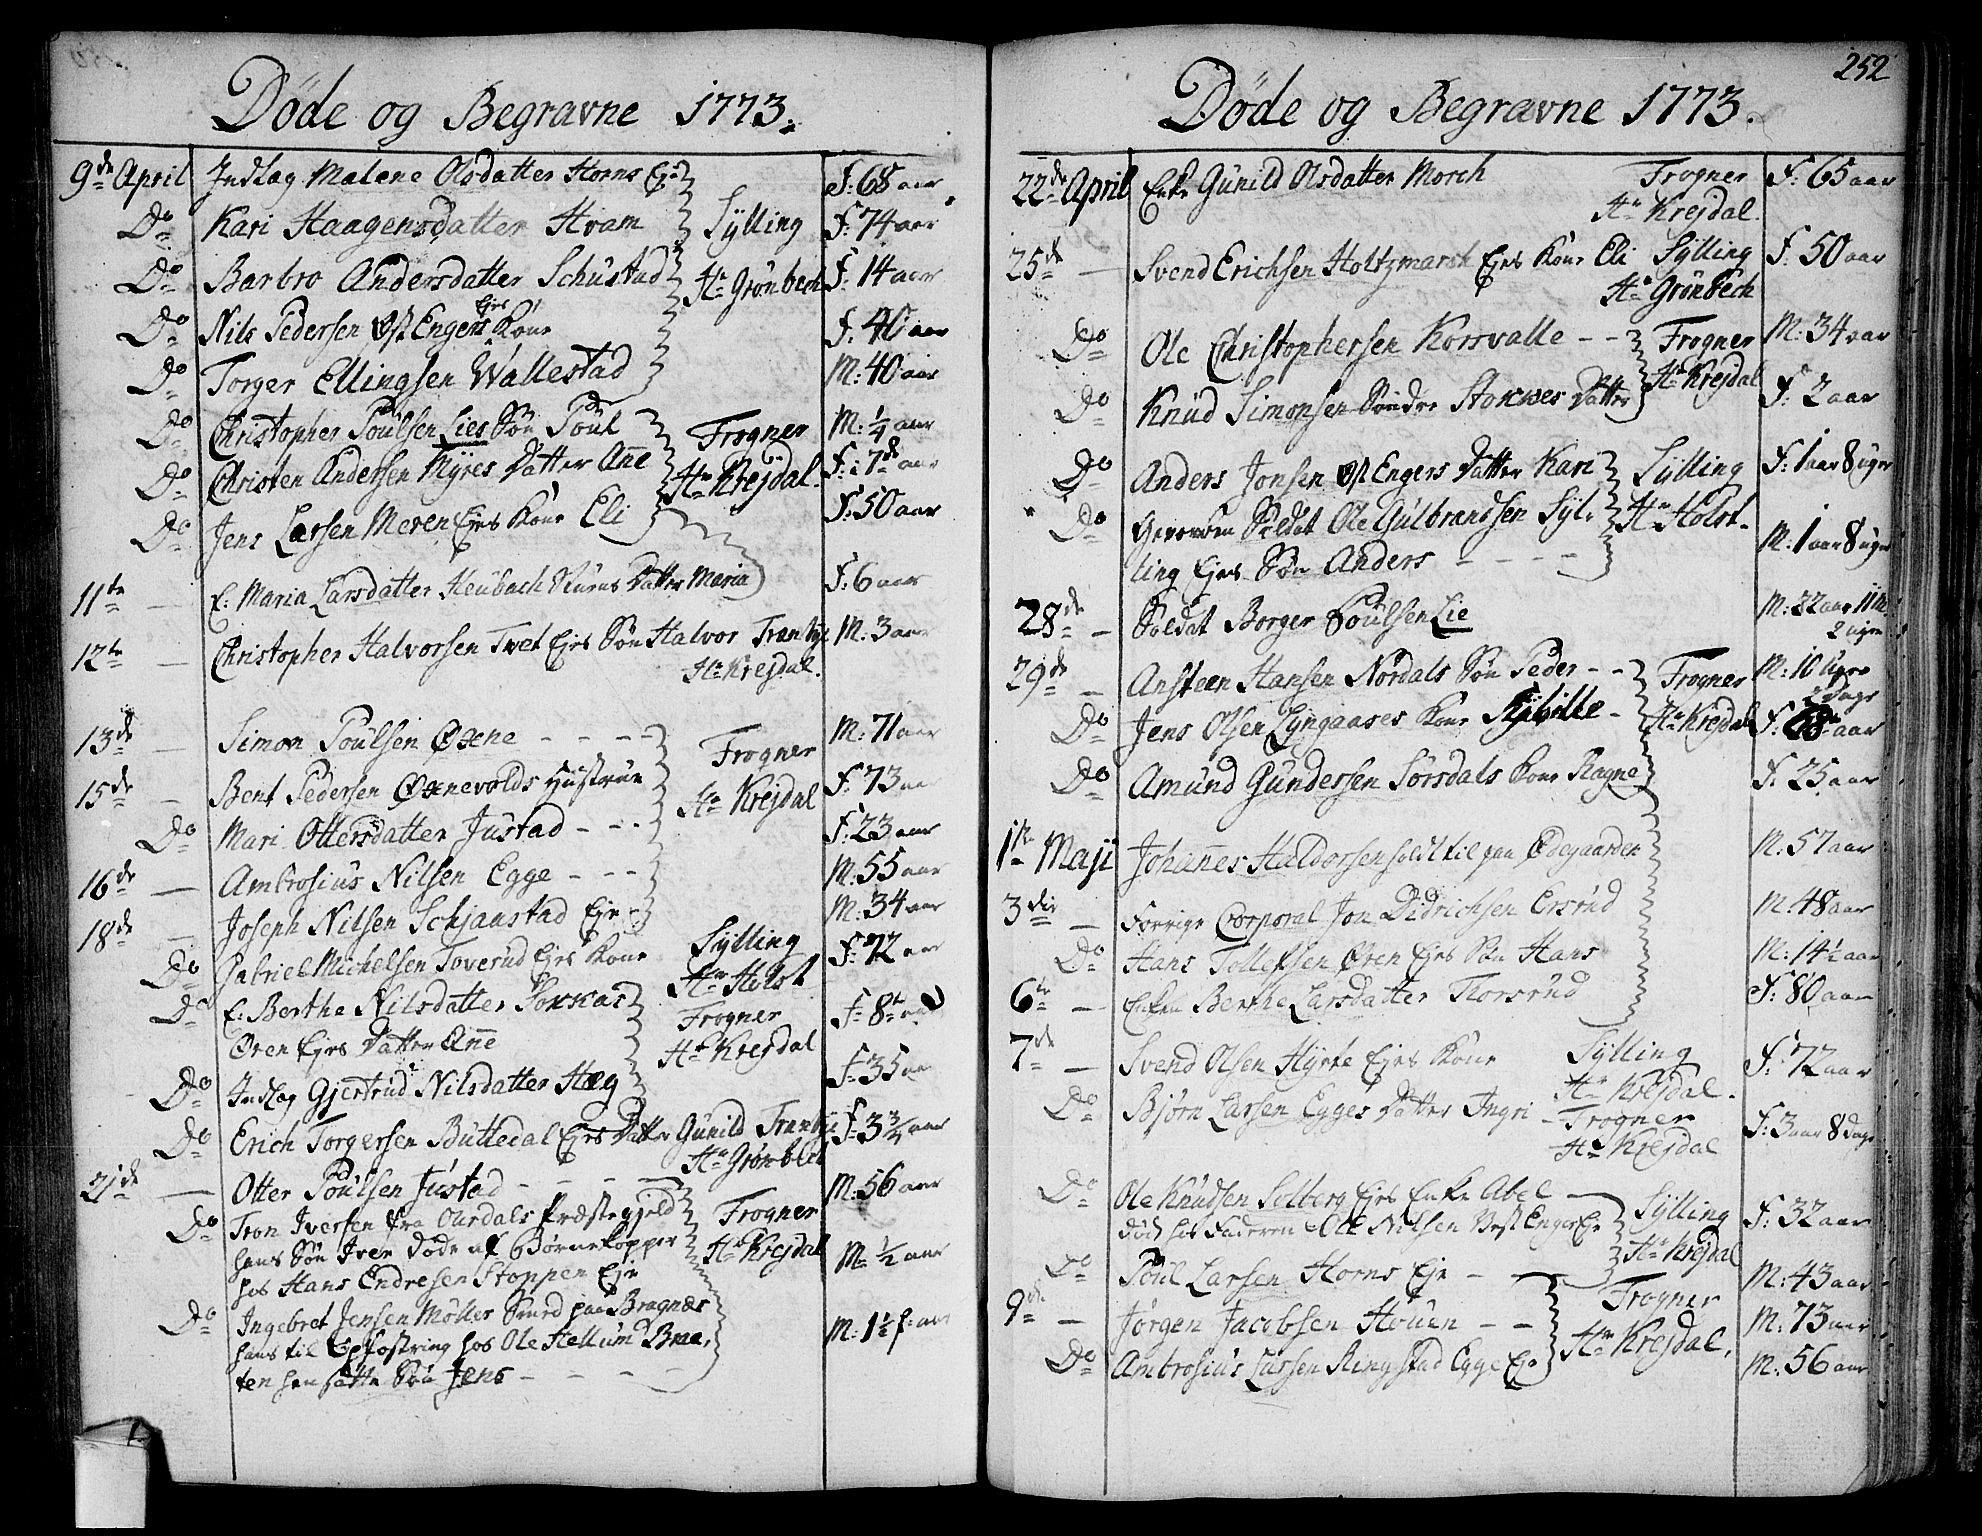 Døde og Begravne 1773.
9de April Indlag Malene Olsdatter Horns Eje F: 68 aar
Do Kari Haagensdatter Hvam Sylling F: 74 aar
Do Barbro Andersdatter Schustad Hr Grønbech F: 14 aar
Do Nils Pedersen Øst Engers Ejes Kone F: 40 aar
Do Torger Ellingsen Wallestad M: 40 aar
Do Christopher Poulsen Lies Søn Poul M: 1/4 aar
Do Christen Andersen Myres Datter Anne Frogner Hr Krejdal. F: i 7de aar
Do Jens Larsen Meren Ejes Kone Eli F: 50 aar
11te E: Maria Larsdatter Heubach Datter Maria F: 6 aar
12te Christopher Halvorsen Tvet Ejes Søn Halvor M: 3 aar
Hr Krejdal.
13de Simon Poulsen Øxne Frogner M: 71 aar
15de Bent Pedersen Øxnevolds Hustrue Hr Krejdal F: 73 aa
Do Mari Ottersdatter Justad F: 23 aar
16de Ambrosius Nilsen Egge M: 55 aar
18de Joseph Nilsen Schjaastad Eje M: 34 aar
Do Gabriel Michelsen Toverud Ejes Kone Sylling Hr Holst F: 72 aar
Do E: Berthe Nilsdatter
Øren Ejes Datter Anne Frogner Hr Krejdal F: 8te aa
Do Indlag Gjertrud Nilsdatter Hæg F: 35 aa
Do Erich Torgersen Buttedal Ejes Datter Gunild F: 3 3/4 aar
Hr Grønbech
21de Otter Poulsen Justad M: 56 aar
Do Tron Iversen fra Ourdals Præstegjeld Frogner
hans Søn Iver døde af Børnekopper Hr Krejdal M: 1/2 aar
hos Hans Endresen Stoppen Eje
Do Ingebret Jensen Møller Smed paa Bragnæs
hans til Opfostring hos Ole Hellum Braa- M: 1 1/2
ten hensatte Søn Jens

252
Døde og Begravne 1773.
22de April Enke Gunild Olsdatter Morch Frogner F: 65 aar
Hr Krejdal.
25de Svend Erichsen Holtzmarsk Ejes Kone Eli Sylling F: 50 aar
Hr Grønbech
Do Ole Christophersen Korsvalle Frogner M: 34 aar
Do Knud Simonsen Søndre Stokkes Datter Hr Krejdal F: 2 aar
Do Anders Jonsen Øst Engers Datter Kari Sylling F: 1 aar 8 uger
Do Geworben Soldat Ole Gulbrandsen Syl- Hr Holst.
ling Ejes Søn Anders M: 1 aar 8 uger
28de Soldat Borger Poulsen Lie M: 22 aar 11 M
2 uger
29de Ansteen Hansen Nordals Søn Peder Frogner M: 10 Uger
2 Dage
Do Jens Olsen Lyngaases Kone Sibille Hr Krejdal F: 68 aar
Do Amund Gundersen Sørsdals Kone Ragne F: 25 aar
1te Maji Johannes Haldorsen holdt til paa Ødegaarden M: 57 aar
3die Forrige Corporal Jon Didrichsen Ersrud M: 48 aar
Do Hans Tollefsen Øren Ejes Søn Hans M: 14 1/2 aar
6te Enken Berthe Larsdatter Thorsrud F: 80 aar
7de Svend Olsen Hyrte Ejes Kone Sylling F: 72 aar
Hr Krejdal.
Do Bjørn Larsen Egges Datter Ingri Frogner F: 3 aar 8 Dage
Hr Krejdal
Do Ole Knudsen Solberg Ejes Enke Abel Sylling
død hos Faderen Ole Nilsen Vest Enger Eje Hr Krejdal F: 32 aar
Do Poul Larsen Horns Eje M: 43 aar
9de Jørgen Jacobsen Houen Frogner M: 73 aar
Do Ambrosius Larsen Ringstad Egge Eje Hr Krejdal. M: 56 aar